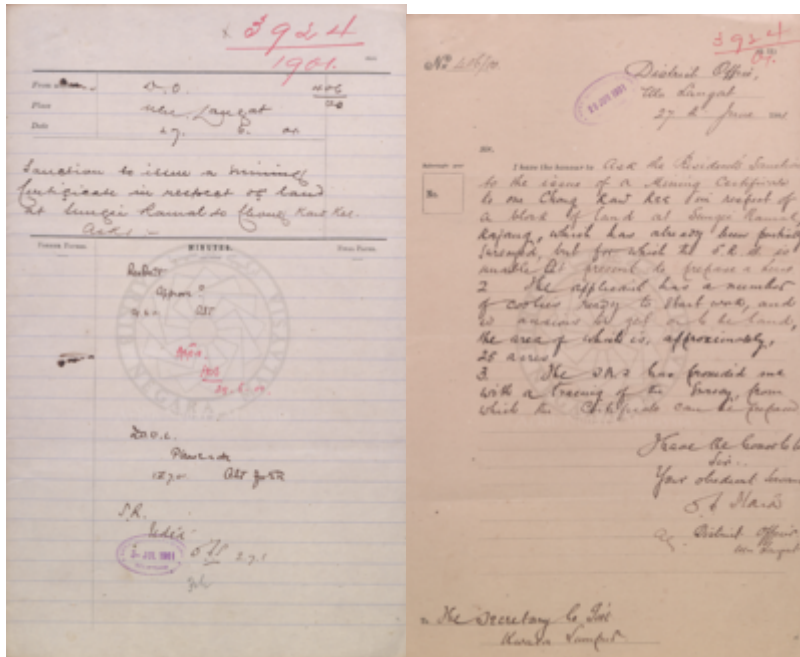 3924
1901.
D.O.
406
00
Place Ulu Langat
Date 27. 6. 01.
Sanction to issue a mining
Certificate in respect of land
at Sungei Ramal to Chong Kaw Kee.
Asks :-
MINUTES.
Resident
Approve?
29.6.01
D.O.U.L.
S.R.
2 JUL 1901
2.7.1
3924
01.
No. 406/00
District Office,
Ulu Langat
27th June 1901
28 JUN 1901
Sir,
No.
I have the honour to ask the Resident's Sanction
to the issue of a Mining Certificate
to one Chong Kaw Kee in respect of
a block of land at Sungei Ramal
Kajang, which has already been
surveyed, but for which the S.R. is
unable at present to prepare a
2 The applicant has a number
of coolies ready to start work, and
is anxious to get on to the land,
the area of which is, approximately,
25 acres
3. The has provided me
with a tracing of the Survey, from
which the Certificate can be prepared
I have the honor to be
Sir
Your obedient Servant
Ag. District Officer
Ulu Langat
The Secretary to Govt
Kuala Lumpur